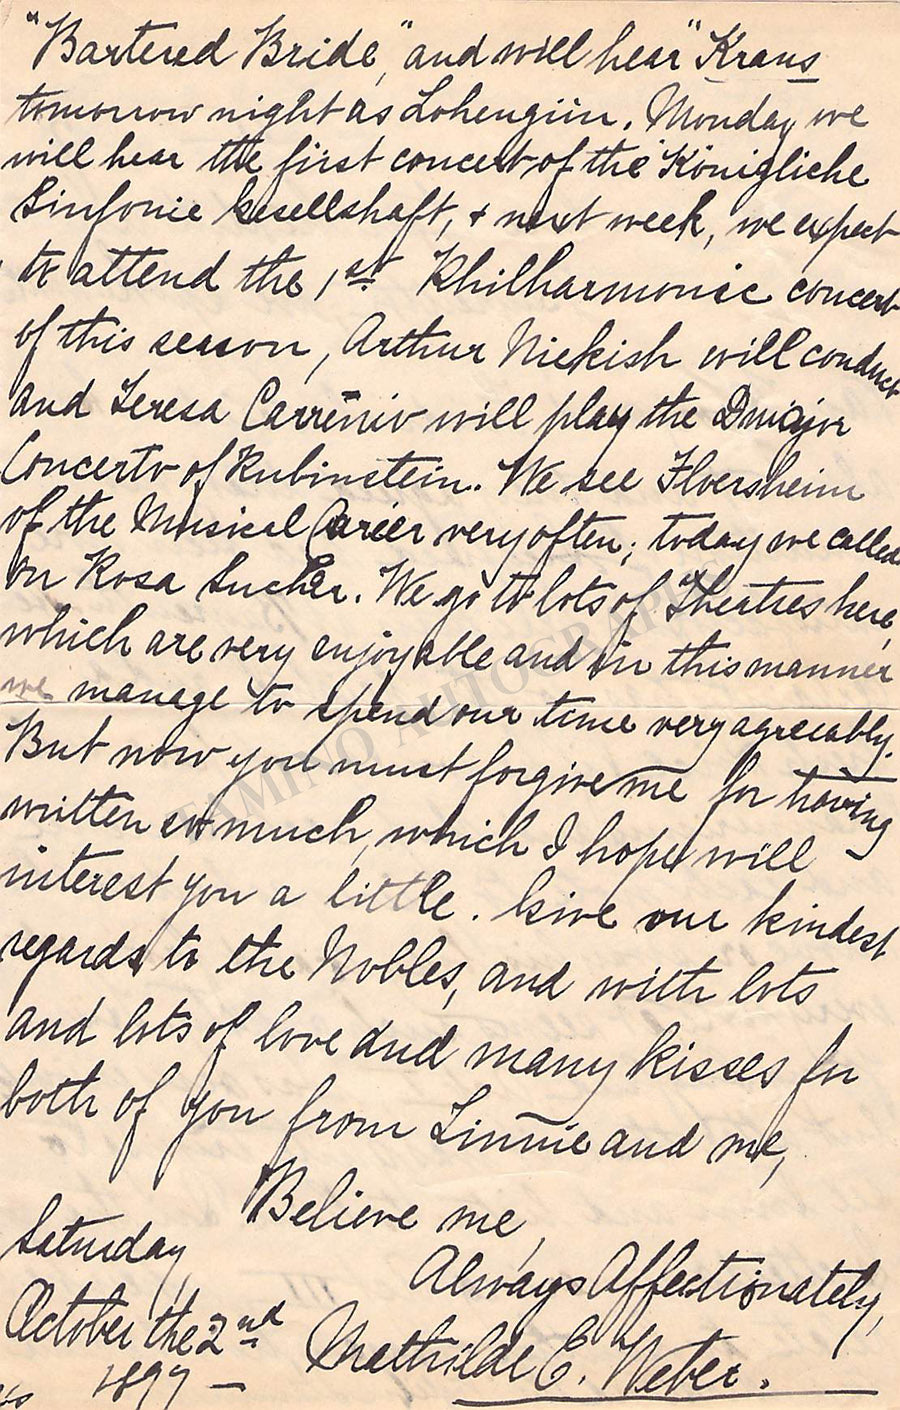 "Bartered Bride," and will hear "Kraus
tomorrow night as Lohengrin. Monday we
will hear the first concert of the "Königliche
Sinfonie Gesellshaft, + next week, we expect
to attend the 1st Philharmonic concert
of this season, Arthur Nickish will conduct
and Teresa Carreño will play the D major
Concerto of Rubinstein. We see Floersheim
of the Musical Courier very often; today we called
on Rosa Sucher. We go to lots of Theatres here,
which are very enjoyable and in this manner
we manage to spend our time very agreeably.
But now you must forgive me for having
written so much, which I hope will
interest you a little. Give our kindest
regards to the Nobles, and with lots
and lots of love and many kisses for
both of you from Linnie and me,
Believe me,
Always Affectionately,
Mathilde E. Weber.
Saturday
October the 2nd
1897 —
TAMINO AUTOGRAPHS